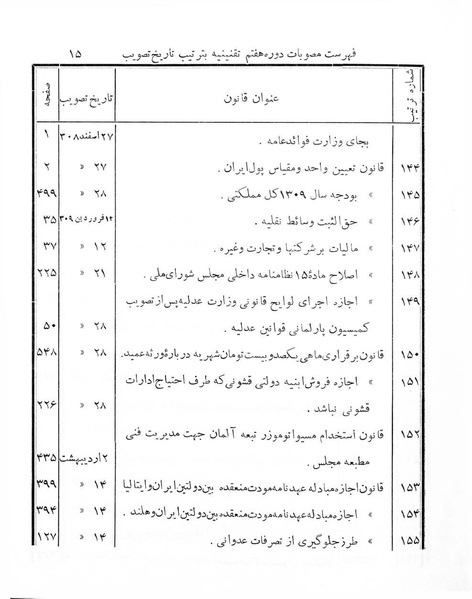 فهرست مصوبات دوره هفتم تقنینیه بترتیب تاریخ تصویب ۱۵
شماره ترتیب عنوان قانون تاریخ تصویب صفحه
بجای وزارت فوائد عامه . ۲۷ اسفند ۳۰۸ ۱
۱۴۴ قانون تعیین واحد و مقیاس پول ایران . ۲۷ « ۲
۱۴۵ » بودجه سال ۱۳۰۹ کل مملکتی . ۲۸ « ۴۹۹
۱۴۶ » حق الثبت وسائط نقلیه . ۱۲ فروردین ۳۰۹ ۳۵
۱۴۷ » مالیات بر شرکتها و تجارت و غیره . ۱۲ « ۳۷
۱۴۸ » اصلاح مادهٔ ۱۵ نظامنامه داخلی مجلس شورای ملی . ۲۱ « ۲۲۵
۱۴۹ » اجازه اجرای لوایح قانونی وزارت عدلیه پس از تصویب
کمیسیون پارلمانی قوانین عدلیه . ۲۸ « ۵۰
۱۵۰ قانون برقراری ماهی یکصد و بیست تومان شهریه در بارهٔ ورثه عمید . ۲۸ « ۵۴۸
۱۵۱ » اجازه فروش ابنیه دولتی قشونی که طرف احتیاج ادارات
قشونی نباشد . ۲۸ « ۲۲۶
۱۵۲ قانون استخدام مسیو اتوموزر تبعه آلمان جهت مدیریت فنی
مطبعه مجلس . ۲ اردیبهشت ۴۳۵
۱۵۳ قانون اجازه مبادله عهدنامه مودت منعقده بین دولتین ایران و ایتالیا ۱۴ « ۳۹۹
۱۵۴ » اجازه مبادله عهدنامه مودت منعقده بین دولتین ایران و هلند . ۱۴ « ۳۹۴
۱۵۵ » طرز جلوگیری از تصرفات عدوانی . ۱۴ « ۱۲۷